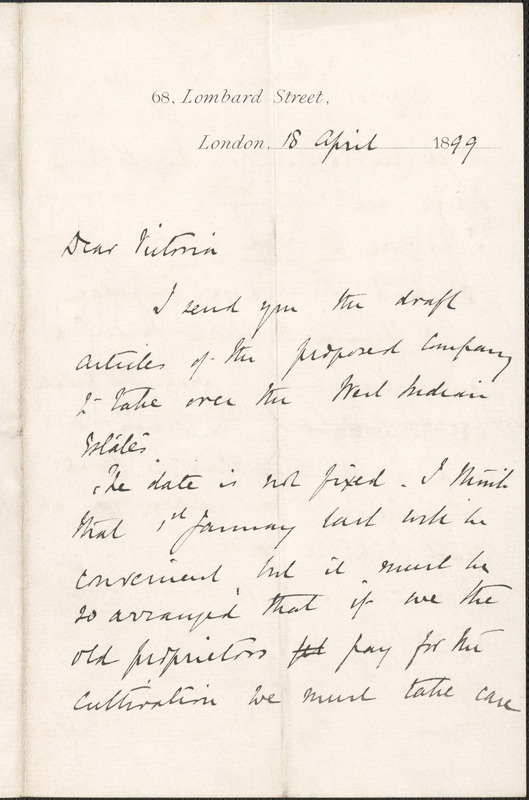 68, Lombard Street,
London, 18 April 1899
Dear Victoria
I send you the draft
articles of the proposed Company
to take over the West Indian
Estates.
The date is not fixed. I think
that 1st January last will be
convenient, but it must be
so arranged that if we the
old proprietors pay for the
cultivation we must take care